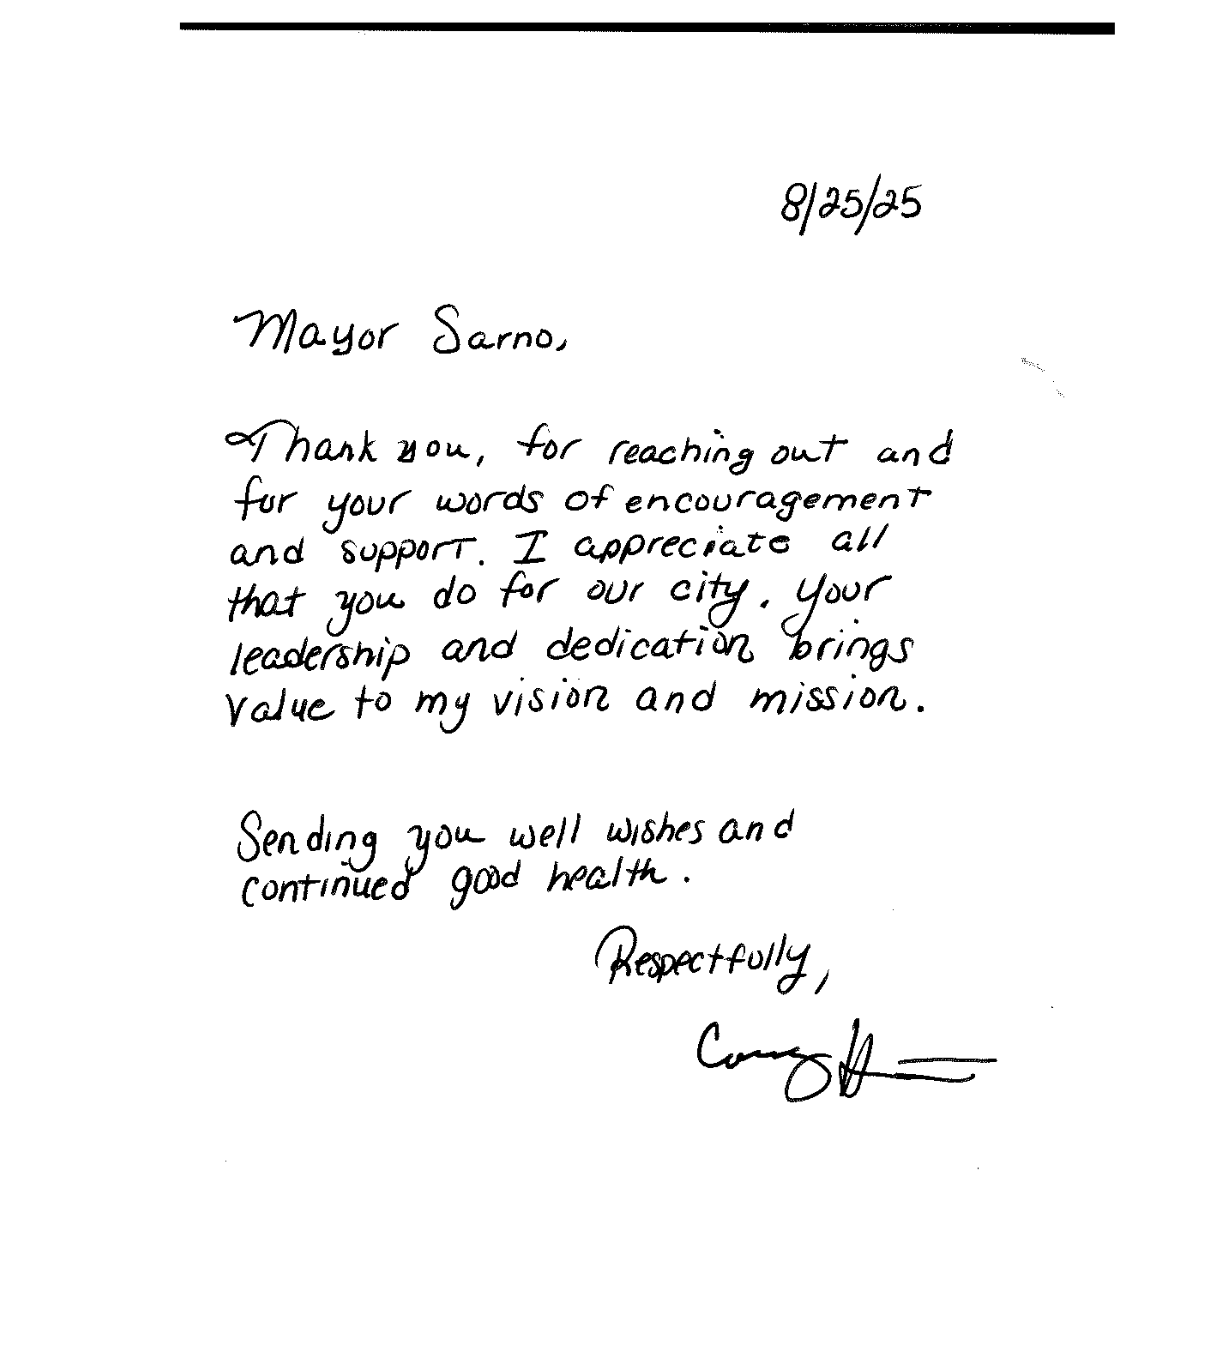 8/25/25
Mayor Sarno,
Thank you, for reaching out and
for your words of encouragement
and support. I appreciate all
that you do for our city. Your
leadership and dedication brings
value to my vision and mission.
Sending you well wishes and
continued good health.
Respectfully,